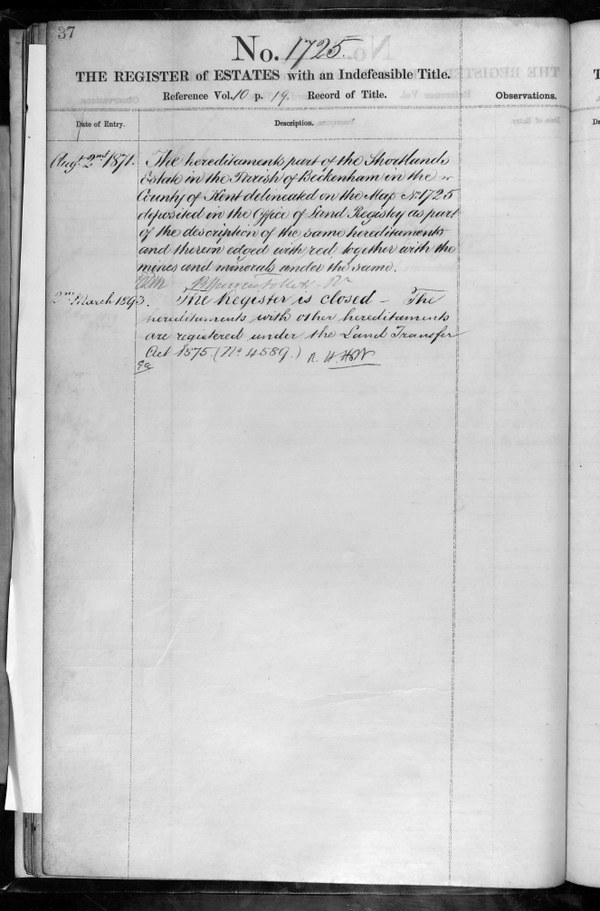 37
No. 1725.
THE REGISTER of ESTATES with an Indefeasible Title.
Reference Vol. 10 p. 19. Record of Title.
Observations.
Date of Entry.
Description.
Augt. 2nd 1871.
The hereditaments part of the Shortlands
Estate in the Parish of Beckenham in the
County of Kent delineated on the Map No 1725
deposited in the Office of Land Registry as part
of the description of the same hereditaments
and therein edged with red, together with the
mines and minerals under the same.
2nd March 1893.
The Register is closed – The
hereditaments with other hereditaments
are registered under the Land Transfer
Act 1875 (No 4589.)